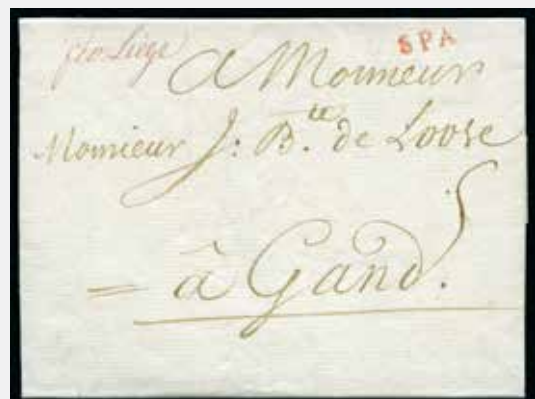 fco Liege
SPA
A Monsieur
Monsieur J: B.te de Loose
5
= à Gand.